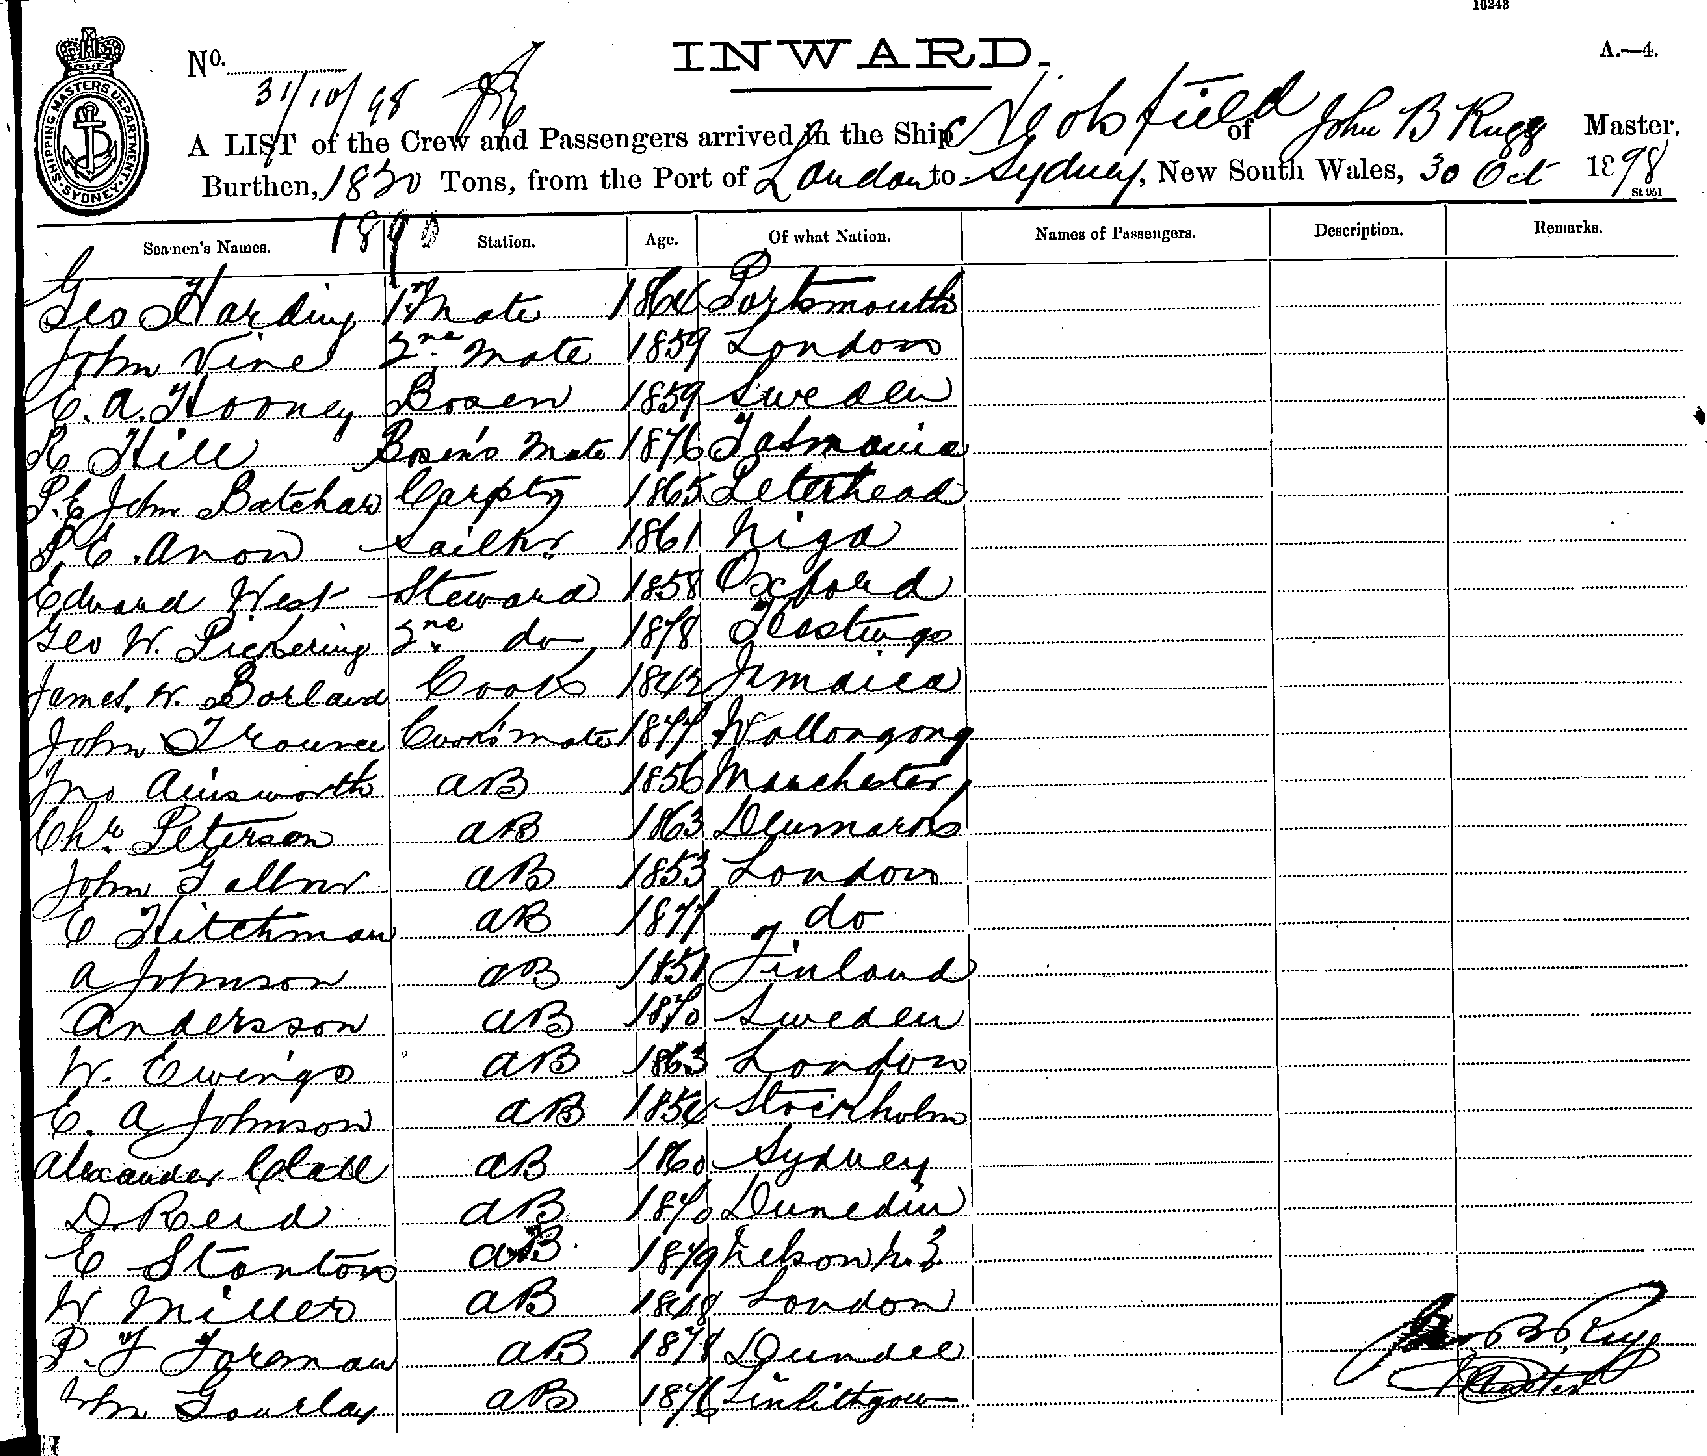 10243
INWARD.
A.—4.
No.
31/10/98
SHIPPING MASTERS DEPARTMENT SYDNEY
A LIST of the Crew and Passengers arrived in the Ship of John B Rugg Master,
Burthen, Tons, from the Port of London to Sydney, New South Wales, 30 Oct 1898
St 951
Seamen's Names. Station. Age. Of what Nation. Names of Passengers. Description. Remarks.
Geo Harding 1st Mate Portsmouth
John Vine 2nd Mate 1859 London
C. A. Hooney Bosen 1859 Sweden
Hill Bosen's Mate 1876 Tasmania
P.C John Batchar Carptr 1865 Peterhead
P. C. Anon Sailkr 1861
Edward West Steward 1858 Oxford
Geo W. Pickering 2nd do 1878 Hastings
James. W. Borland Cook 1842 Jamaica
John Trounce Cook's mate 1877 Wollongong
Jno Ainsworth AB 1856 Manchester
Chr. Peterson AB 1863 Denmark
John AB 1853 London
C Hitchman AB 1877 do
A Johnson AB 1851 Finland
Andersson AB 1870 Sweden
W. Ewings AB 1863 London
E. A Johnson AB Stockholm
Alexander AB 1860 Sydney
D Reid AB 1870 Dunedin
E Stanton AB 1879 Nelson N. Z
W Miller AB London
P. F Foreman AB 1878 Dundee
Wm Gourlay AB 1876 Linlithgow
Jno. B. Rugg
Master